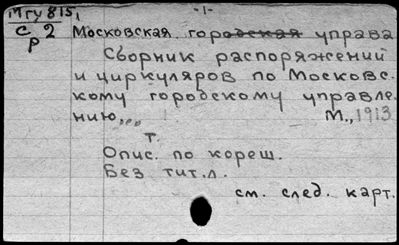 МГУ 815, -1-
С 2
р
Московская городская управа
Сборник распоряжений
и циркуляров по Московс-
кому городскому управле-
нию... М., 1913
т.
Опис. по кореш.
Без тит.л.
см. след. карт.